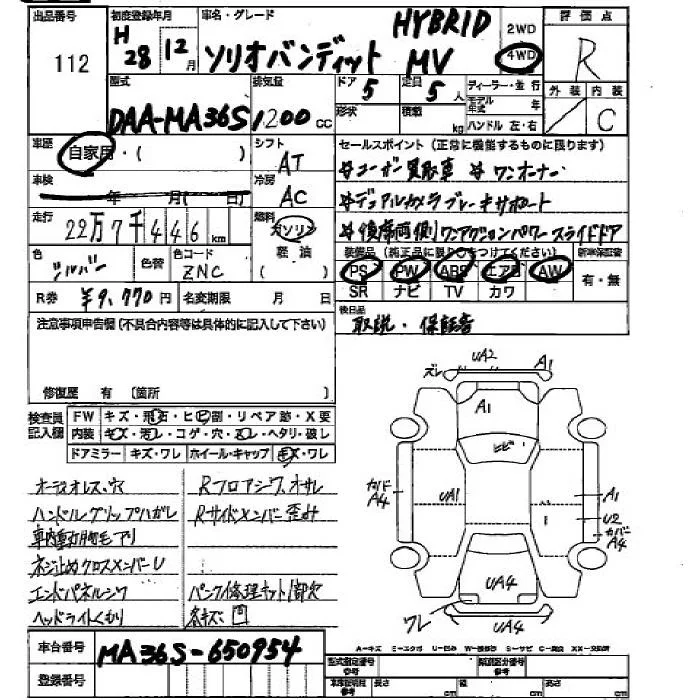 出品番号 初度登録年月 車名・グレード 評価点
112 H28 12月 ソリオバンディット HYBRID MV 2WD 4WD R
型式 排気量 ドア 5 定員 5人 ディーラー・並行 外装 内装
DAA-MA36S 1200cc 形状 積載 kg モデル年式 年 ハンドル 左・右 C
車歴 自家用・( ) シフト AT セールスポイント (正常に機能するものに限ります)
車検 年 月( 日) 冷房 AC
#ユーザー買取車 #ワンオーナー
#デュアルカメラブレーキサポート
走行 22万7千446km 燃料 ガソリン 軽油 ( )
#後席両側ワンアクションパワースライドドア
色 シルバー 色替 色コード ZNC
装備品 (純正品に限り○をつけてください) 新車保証書
PS PW ABS エアB AW 有・無
SR ナビ TV カワ
R券 ¥9,770円 名変期限 月 日
後日品 取説・保証書
注意事項申告欄 (不具合内容等は具体的に記入して下さい)
修復歴 有 〔箇所 〕
検査員記入欄 FW キズ・飛石・ヒビ割・リペア跡・X要
内装 キズ・汚レ・コゲ・穴・スレ・ヘタリ・破レ
ドアミラー キズ・ワレ ホイール・キャップ キズ・ワレ
オーディオレス、穴 Rフロアシワ、オサレ
ハンドルグリップハガレ Rサイドメンバー歪み
車内動物毛アリ
ネジ止めクロスメンバーU
エンドパネルシワ パンク修理キット1部欠
ヘッドライトくもり
ズレ UA2 A1
A1
ヒビ
カバド A4 UA1 A1
U2
カバー A4
UA4
ワレ UA4
A=キズ U=凹み S=サビ
車台番号 MA36S-650954
登録番号
型式指定番号 参考 類別区分番号 参考
長さ cm 幅 cm 高さ cm